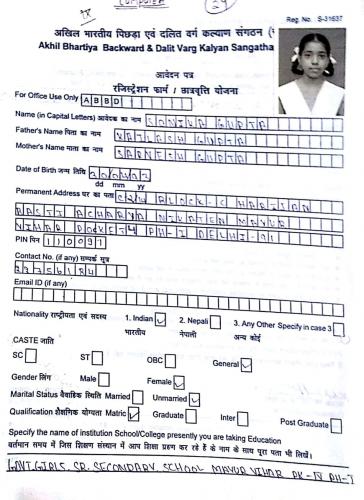 COMPUTER
24
Reg. No. S-31637
अखिल भारतीय पिछड़ा एवं दलित वर्ग कल्याण संगठन
Akhil Bhartiya Backward & Dalit Varg Kalyan Sangatha
आवेदन पत्र
रजिस्ट्रेशन फार्म / छात्रवृत्ति योजना
For Office Use Only A B B D
Name (in Capital Letters) आवेदक का नाम SONIKA GUPTA
Father's Name पिता का नाम KAILASH GUPTA
Mother's Name माता का नाम SARITA GUPTA
Date of Birth जन्म तिथि
dd mm yy
Permanent Address घर का पता C-24 BLOCK-C HARIJAN
BASTI ACHARYA NIKATEN MAYUR
VIHAR POCKET 4 PH-I DELHI-91
PIN पिन 110091
Contact No. (if any) सम्पर्क सूत्र
Email ID (if any)
Nationality राष्ट्रीयता एवं सदस्य 1. Indian ✓ 2. Nepali 3. Any Other Specify in case 3
भारतीय नेपाली अन्य कोई
CASTE जाति
SC ST OBC General ✓
Gender लिंग Male Female ✓
Marital Status वैवाहिक स्थिति Married Unmarried ✓
Qualification शैक्षणिक योग्यता Matric ✓ Graduate Inter Post Graduate
Specify the name of institution School/College presently you are taking Education
वर्तमान समय में जिस शिक्षण संस्थान में आप शिक्षा ग्रहण कर रहे हैं के नाम के साथ पूरा पता भी लिखें।
GOVT. GIRLS. SR. SECONDARY. SCHOOL MAYUR VIHAR PK-IV PH-I